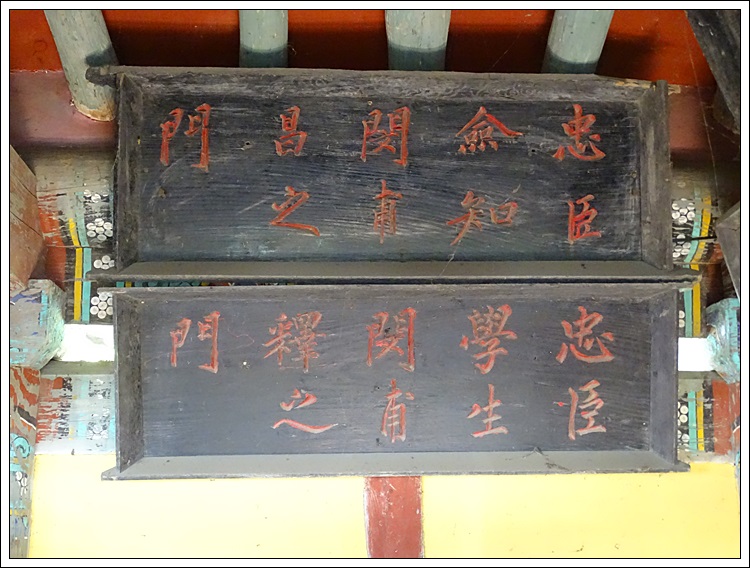 忠臣
僉知
閔甫
昌之
門
忠臣
學生
閔甫
釋之
門